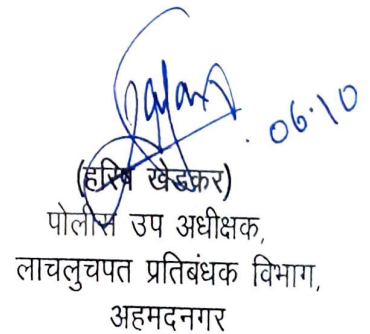 06.10
(हरिष खेडकर)
पोलीस उप अधीक्षक,
लाचलुचपत प्रतिबंधक विभाग,
अहमदनगर